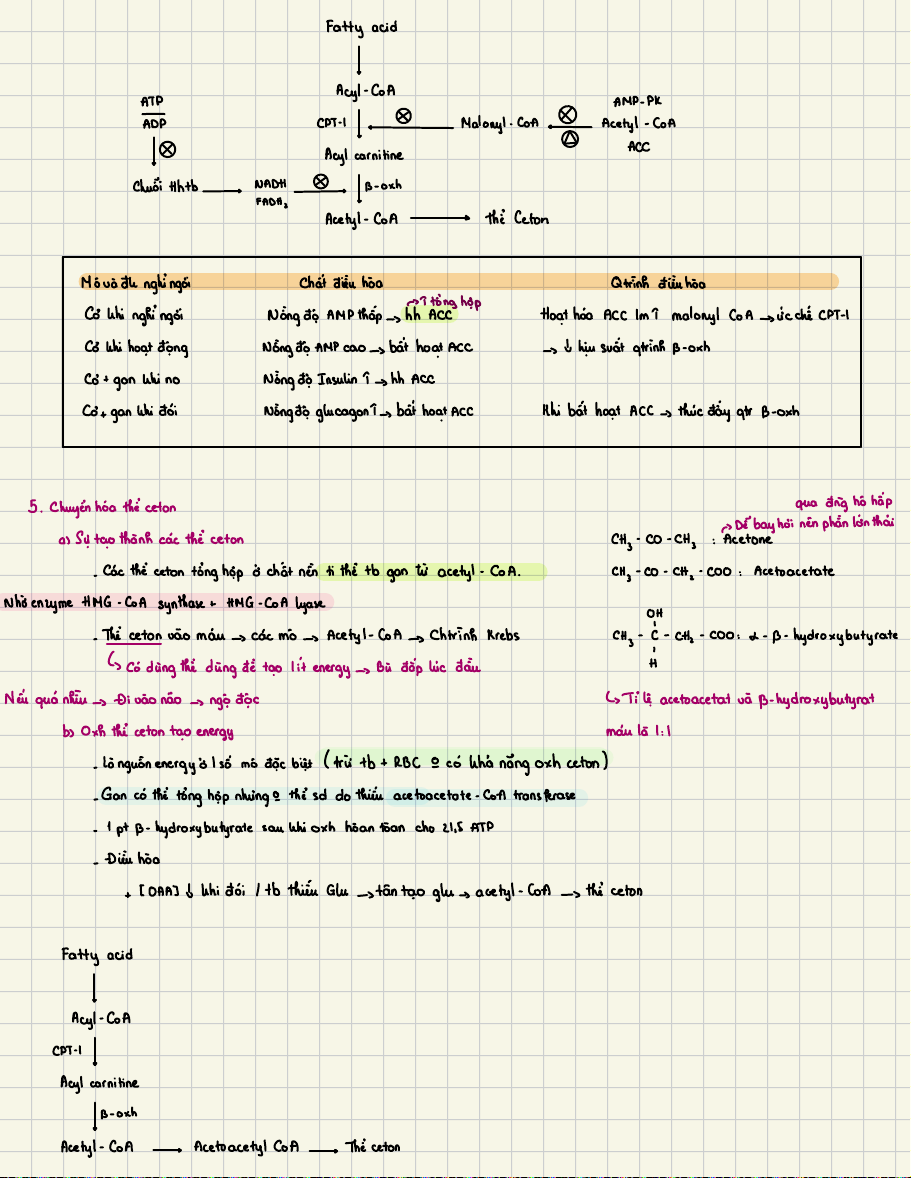 Fatty acid
Acyl-CoA
ATP
ADP
CPT-1
Malonyl-CoA
AMP-PK
Acetyl-CoA
ACC
Acyl carnitine
Chuỗi Hhtb
NADH
FADH₂
β-oxh
Acetyl-CoA
thể Ceton
Mô và đk nghỉ ngơi Chất điều hòa Qtrình điều hòa
↑ tổng hợp
Cơ khi nghỉ ngơi Nồng độ AMP thấp → hh ACC Hoạt hóa ACC lm ↑ malonyl CoA → ức chế CPT-1
Cơ khi hoạt động Nồng độ AMP cao → bất hoạt ACC → ↓ hịu suất qtrình β-oxh
Cơ + gan khi no Nồng độ Insulin ↑ → hh ACC
Cơ + gan khi đói Nồng độ glucagon ↑ → bất hoạt ACC Khi bất hoạt ACC → thúc đẩy qtr β-oxh
5. Chuyển hóa thể ceton
qua đng hô hấp
→ Dễ bay hơi nên phần lớn thải
a) Sự tạo thành các thể ceton
CH₃ - CO - CH₃ : Acetone
- Các thể ceton tổng hợp ở chất nền ti thể tb gan từ acetyl-CoA.
CH₃ - CO - CH₂ - COO : Acetoacetate
Nhờ enzyme HMG-CoA synthase + HMG-CoA lyase
OH
- Thể ceton vào máu → các mô → Acetyl-CoA → Chtrình Krebs
CH₃ - C - CH₂ - COO : α - β - hydroxybutyrate
H
↳ Có dùng thể dùng để tạo 1 ít energy → Bù đắp lúc đầu
Nếu quá nhìu → Đi vào não → ngộ độc
↳ Tỉ lệ acetoacetat và β-hydroxybutyrat
máu là 1:1
b) Oxh thể ceton tạo energy
- là nguồn energy ở 1 số mô đặc biệt (trừ tb + RBC o có khả năng oxh ceton)
- Gan có thể tổng hợp nhưng o thể sd do thiếu acetoacetate-CoA transferase
- 1 pt β-hydroxybutyrate sau khi oxh hoàn toàn cho 21,5 ATP
- Điều hòa
+ [OAA] ↓ khi đói / tb thiếu Glu → tân tạo glu → acetyl-CoA → thể ceton
Fatty acid
Acyl-CoA
CPT-1
Acyl carnitine
β-oxh
Acetyl-CoA → Acetoacetyl CoA → Thể ceton